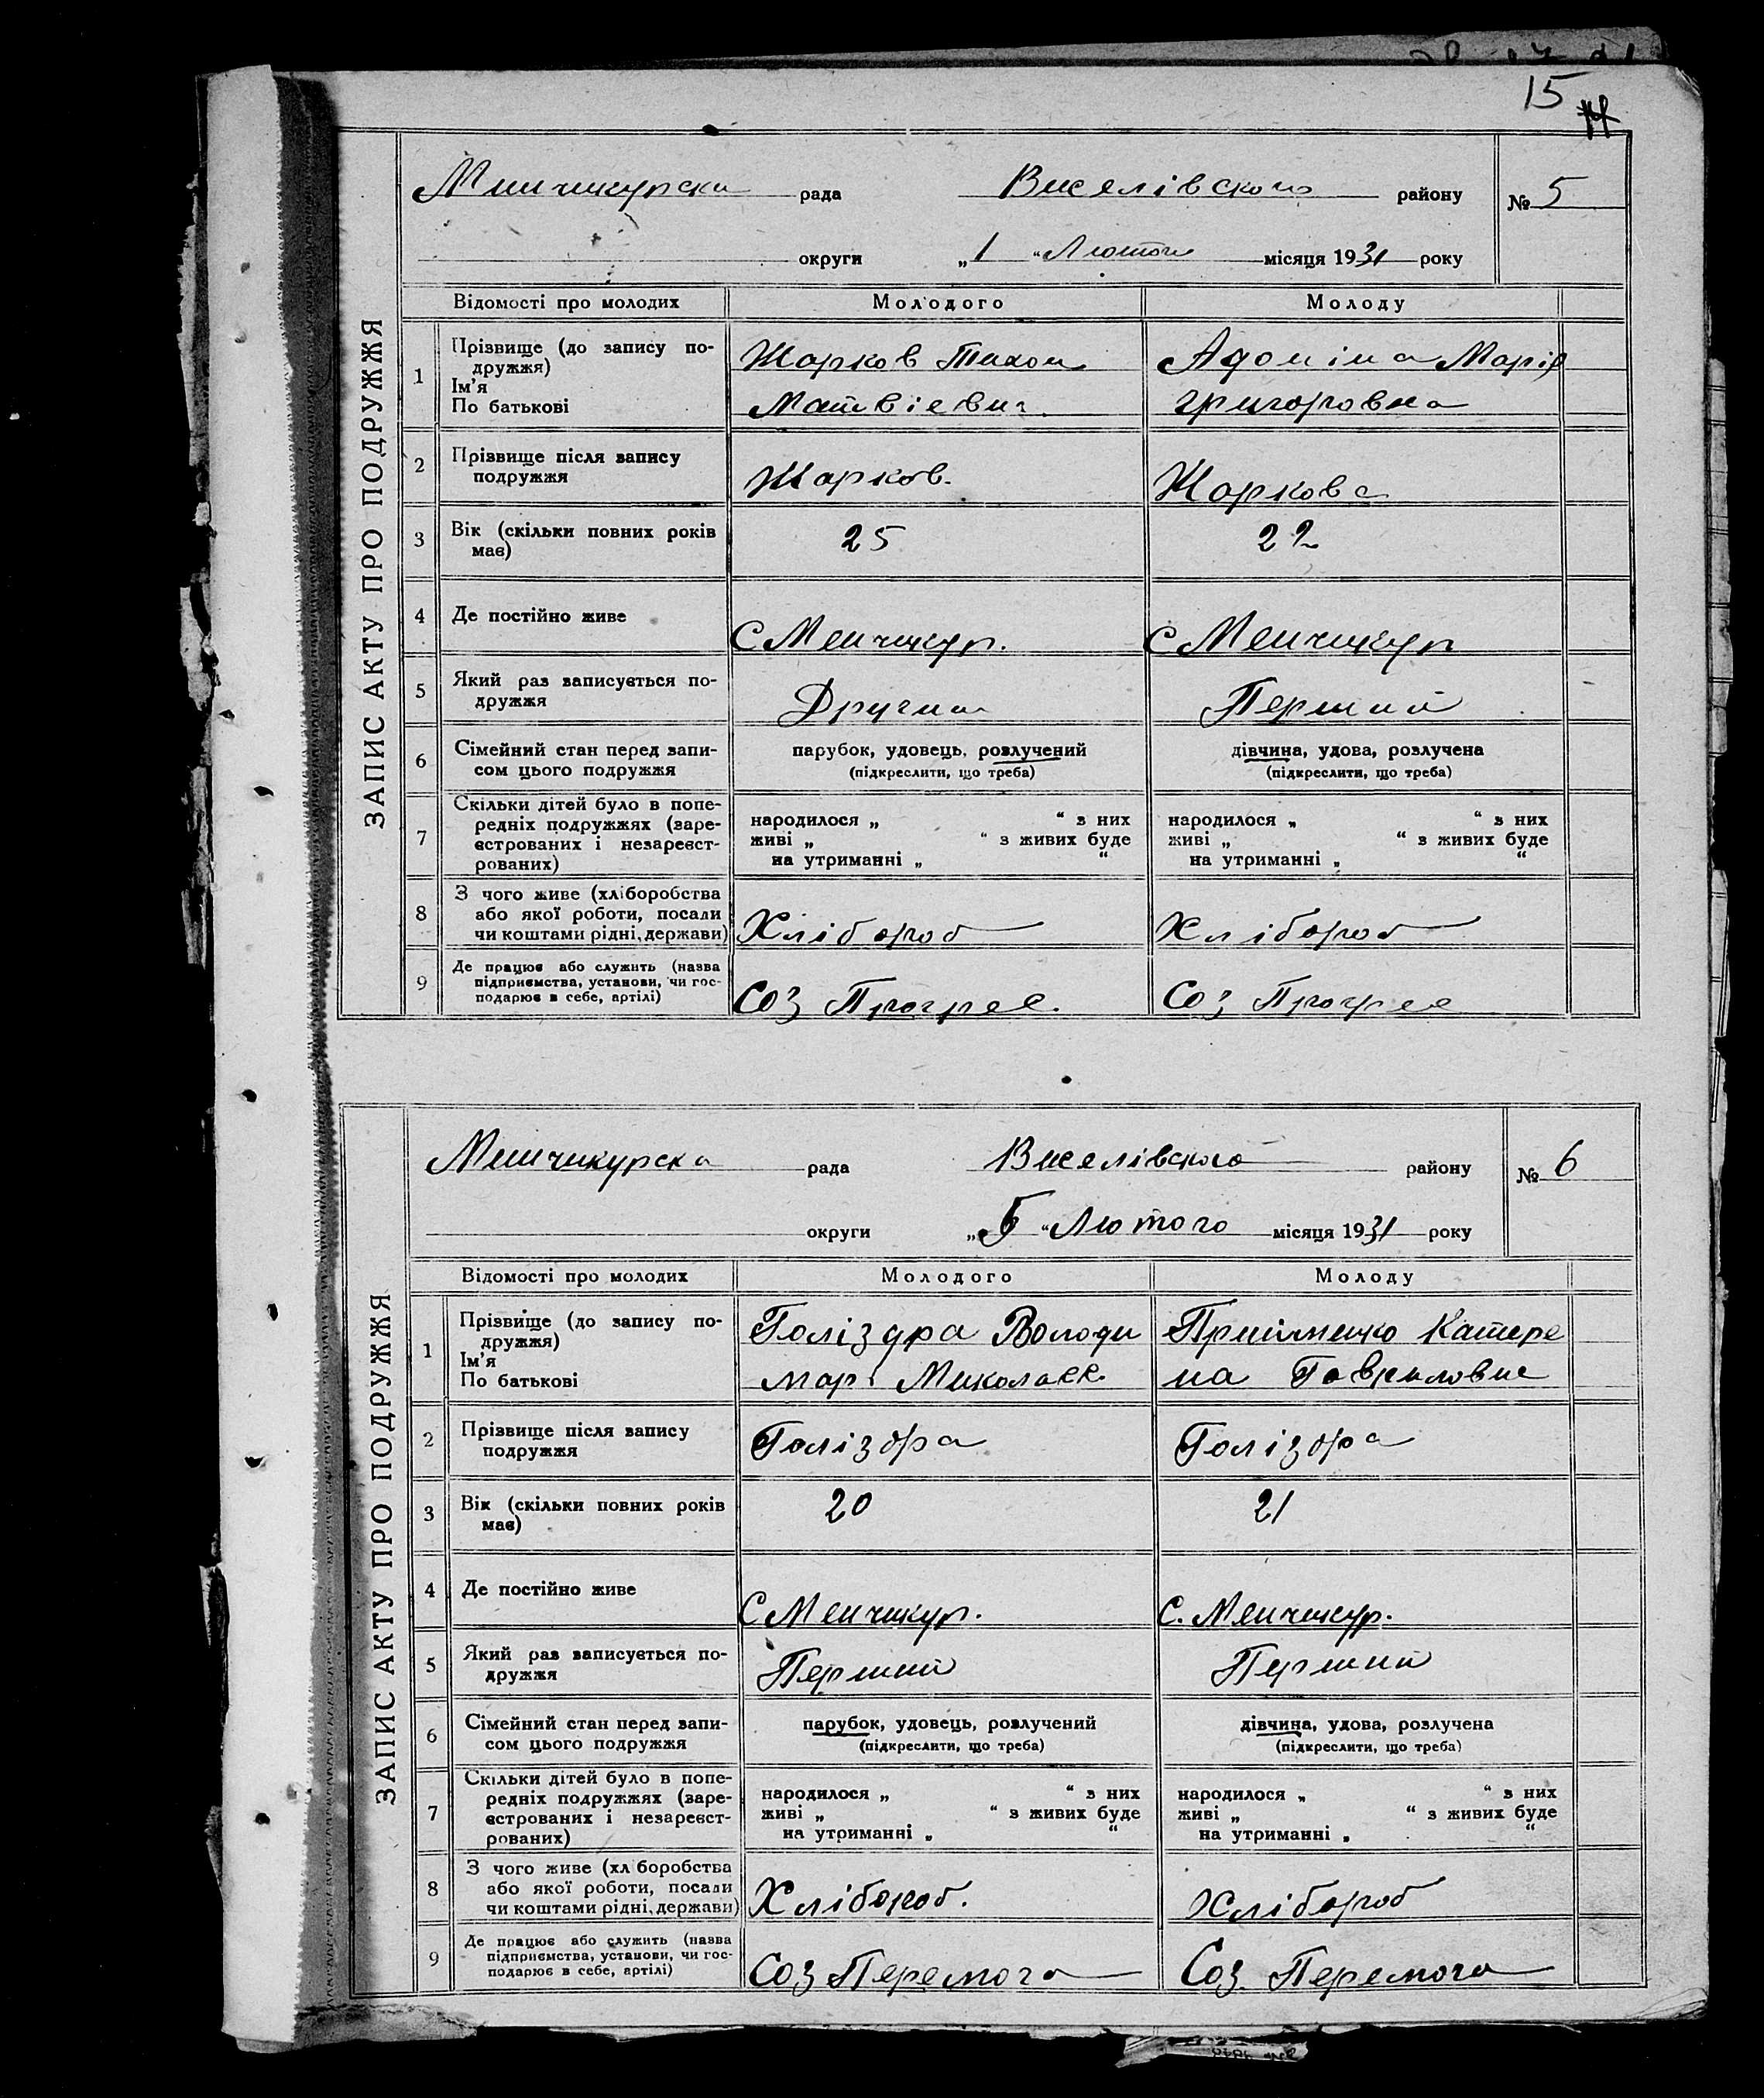 15
14
ЗАПИС АКТУ ПРО ПОДРУЖЖЯ
Минчикурска рада Виселівского району № 5
округи „1“ Лютого місяця 1931 року
Відомості про молодих Молодого Молоду
1 Прізвище (до запису подружжя) Ім'я По батькові
Жарков Тихон Адоніна Марія
Матвієвич григоровна
2 Прізвище після запису подружжя Жарков. Жаркова
3 Вік (скільки повних років має) 25 22
4 Де постійно живе С Менчикур. С Менчикур
5 Який раз записується подружжя Другий Перший
6 Сімейний стан перед записом цього подружжя парубок, удовець, розлучений дівчина, удова, розлучена
(підкреслити, що треба) (підкреслити, що треба)
7 Скільки дітей було в попередніх подружжях (зареєстрованих і незареєстрованих)
народилося „ “ з них народилося „ “ з них
живі „ “ з живих буде живі „ “ з живих буде
на утриманні „ “ на утриманні „ “
8 З чого живе (хліборобства або якої роботи, посади чи коштами рідні, держави) Хлібороб Хлібороб
9 Де працює або служить (назва підприємства, установи, чи господарює в себе, артілі) Соз Прогрес. Соз Прогрес
ЗАПИС АКТУ ПРО ПОДРУЖЖЯ
Минчикурска рада Виселівского району № 6
округи „5“ Лютого місяця 1931 року
Відомості про молодих Молодого Молоду
1 Прізвище (до запису подружжя) Ім'я По батькові
Голіздра Володи Прийменко Катере
мар Миколаєв. на Гавриловне
2 Прізвище після запису подружжя Голіздра Голіздра
3 Вік (скільки повних років має) 20 21
4 Де постійно живе С Менчикур. С. Менчикур.
5 Який раз записується подружжя Перший Перший
6 Сімейний стан перед записом цього подружжя парубок, удовець, розлучений дівчина, удова, розлучена
(підкреслити, що треба) (підкреслити, що треба)
7 Скільки дітей було в попередніх подружжях (зареєстрованих і незареєстрованих)
народилося „ “ з них народилося „ “ з них
живі „ “ з живих буде живі „ “ з живих буде
на утриманні „ “ на утриманні „ “
8 З чого живе (хліборобства або якої роботи, посади чи коштами рідні, держави) Хлібороб. Хлібороб
9 Де працює або служить (назва підприємства, установи, чи господарює в себе, артілі) Соз Перемога Соз. Перемога